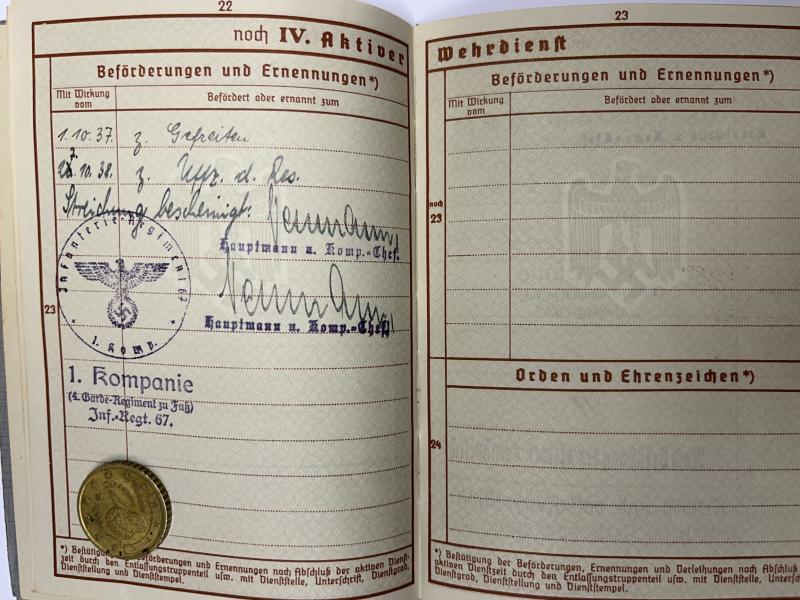 22
noch IV. Aktiver
Beförderungen und Ernennungen*)
Mit Wirkung vom
Befördert oder ernannt zum
1.10.37. z. Gefreiten
10.38. z. Uffz. d. Res.
Streichung bescheinigt:
Hauptmann u. Komp.-Chef.
Infanterie-Regiment 67
* 1. Komp. *
23
Hauptmann u. Komp.-Chef.
1. Kompanie
(4. Garde-Regiment zu Fuß)
Inf.-Regt. 67.
*) Bestätigung der Beförderungen und Ernennungen nach Abschluß der aktiven Dienst-
zeit durch den Entlassungstruppenteil usw. mit Dienststelle, Unterschrift, Dienstgrad,
Dienststellung und Dienststempel.
23
Wehrdienst
Beförderungen und Ernennungen*)
Mit Wirkung vom
Befördert oder ernannt zum
noch
23
Orden und Ehrenzeichen*)
24
*) Bestätigung der Beförderungen, Ernennungen und Verleihungen nach Abschluß der
aktiven Dienstzeit durch den Entlassungstruppenteil usw. mit Dienststelle, Unterschrift,
Dienstgrad, Dienststellung und Dienststempel.